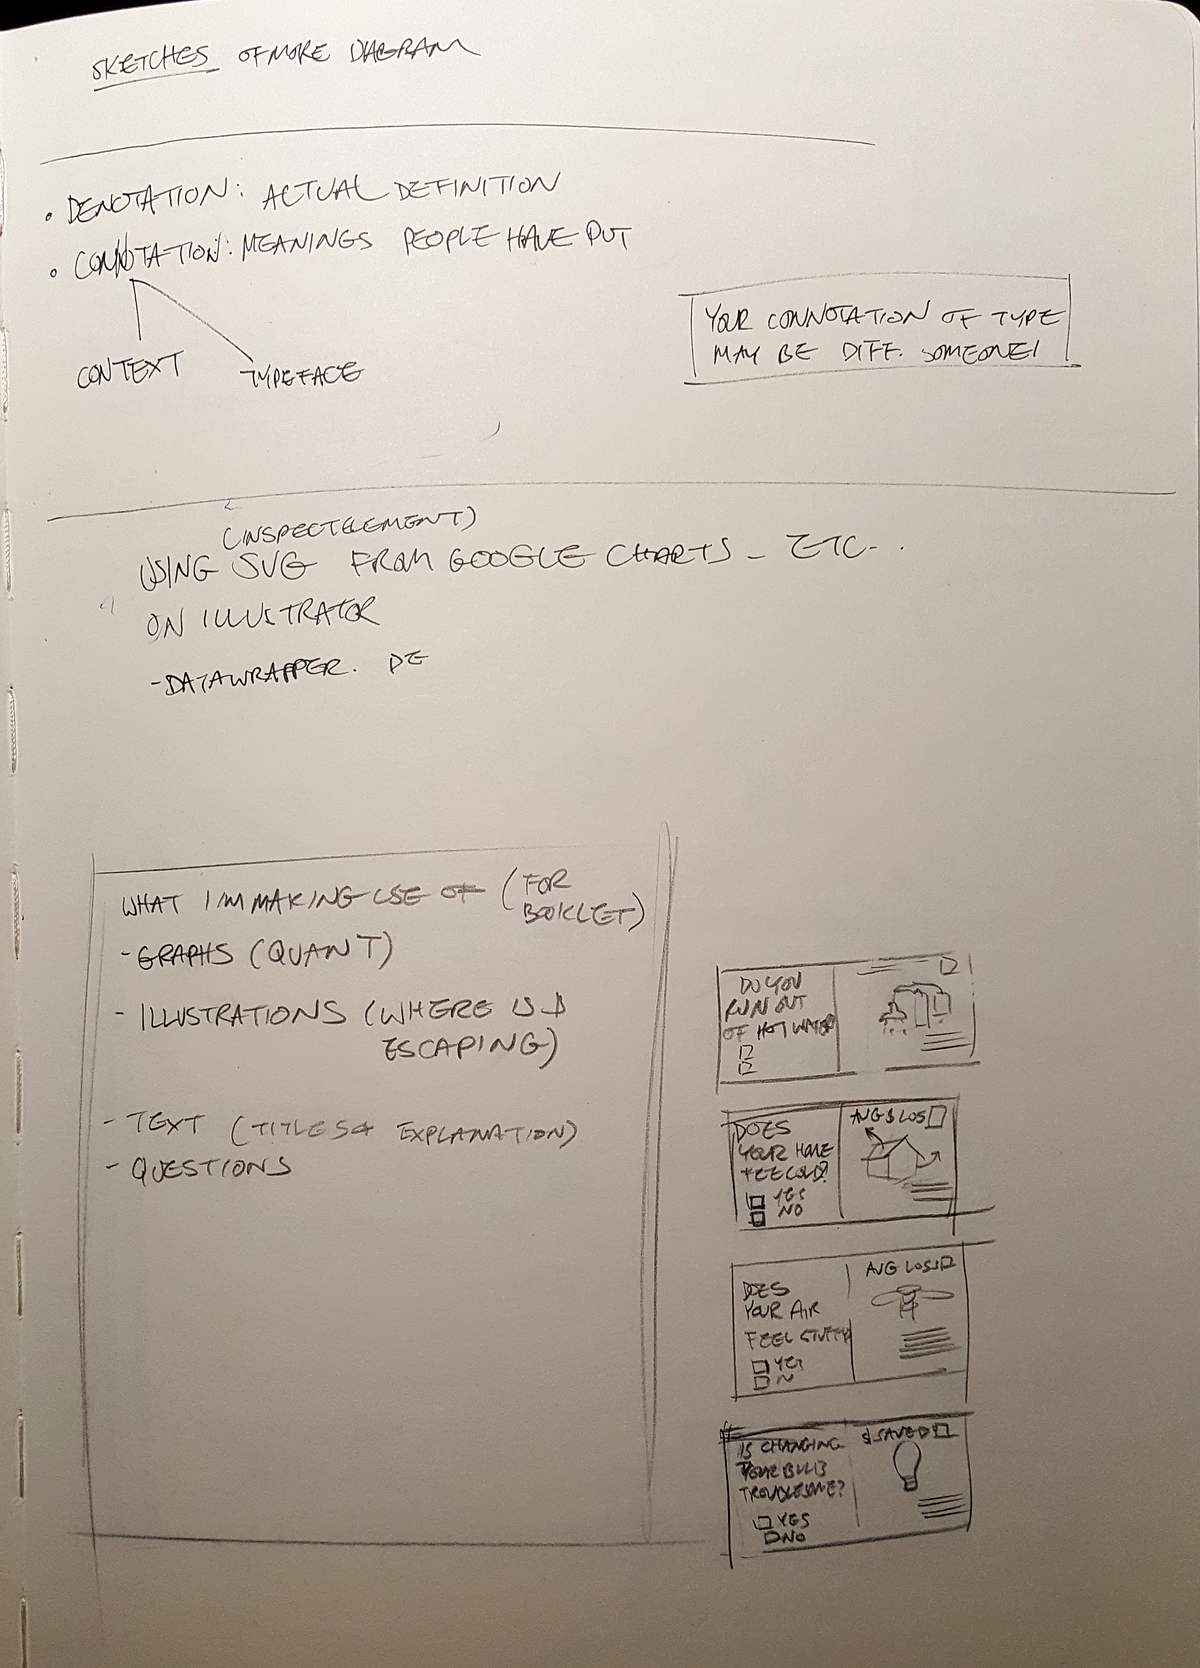 SKETCHES OF MORE DIAGRAM
• DENOTATION: ACTUAL DEFINITION
• CONNOTATION: MEANINGS PEOPLE HAVE PUT
CONTEXT
TYPEFACE
YOUR CONNOTATION OF TYPE
MAY BE DIFF. SOMEONE!
(INSPECT ELEMENT)
USING SVG FROM GOOGLE CHARTS - ETC..
ON ILLUSTRATOR
- DATAWRAPPER. DE
WHAT IM MAKING USE OF (FOR
BOOKLET)
- GRAPHS (QUANT)
- ILLUSTRATIONS (WHERE IS $
ESCAPING)
- TEXT (TITLES & EXPLANATION)
- QUESTIONS
DO YOU
RUN OUT
OF HOT WATER
DOES
YOUR HOME
FEEL COLD?
YES
NO
AVG $ LOS
DOES
YOUR AIR
FEEL STUFFY
YES
N
AVG LOSS
IS CHANGING
YOUR BULB
TROUBLESOME?
YES
NO
$ SAVED